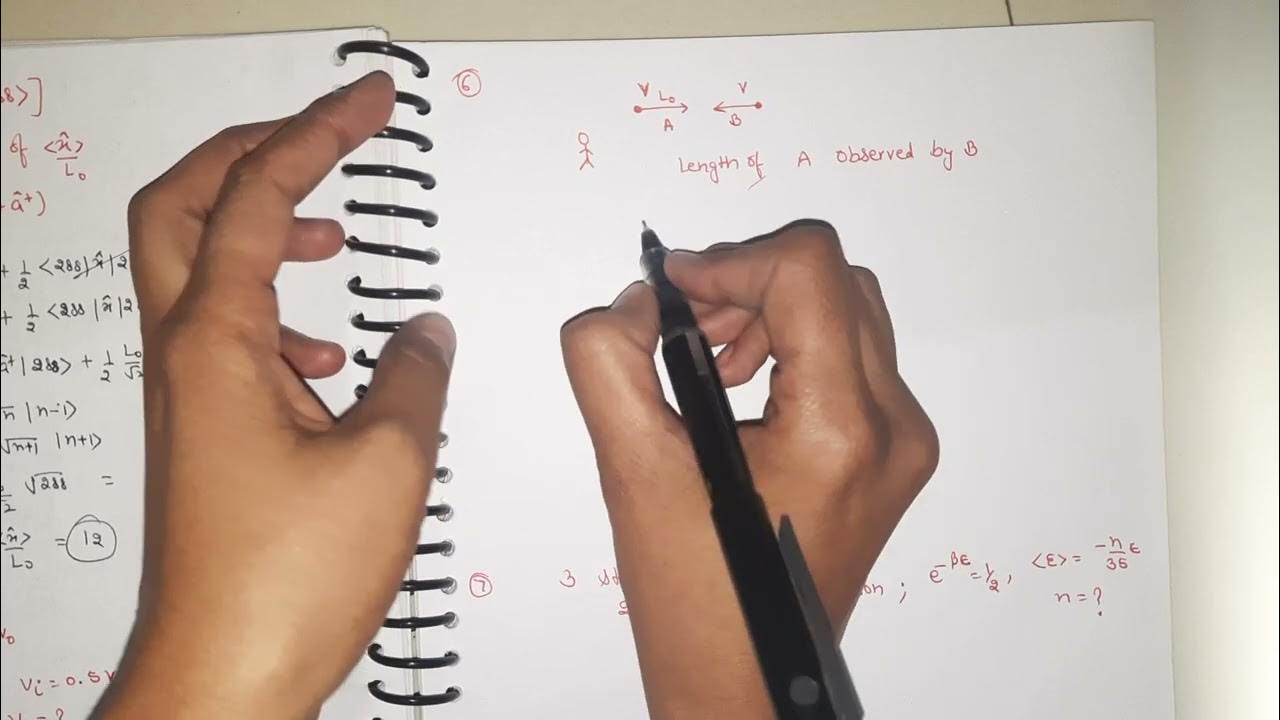 8>]
of <x̂>/L₀
â⁺)
+ 1/2 <288|x̂|2
+ 1/2 <288|x̂|2
â⁺|288> + 1/2 L₀/√2
√n |n-1>
√n+1 |n+1>
√288 =
<x̂>/L₀ = 12
Vi = 0.5
= ?
⑥
V L₀ V
A B
Length of A observed by B
⑦ 3 ; e^-βε = 1/2, <ε> = -n/35 ε
n = ?